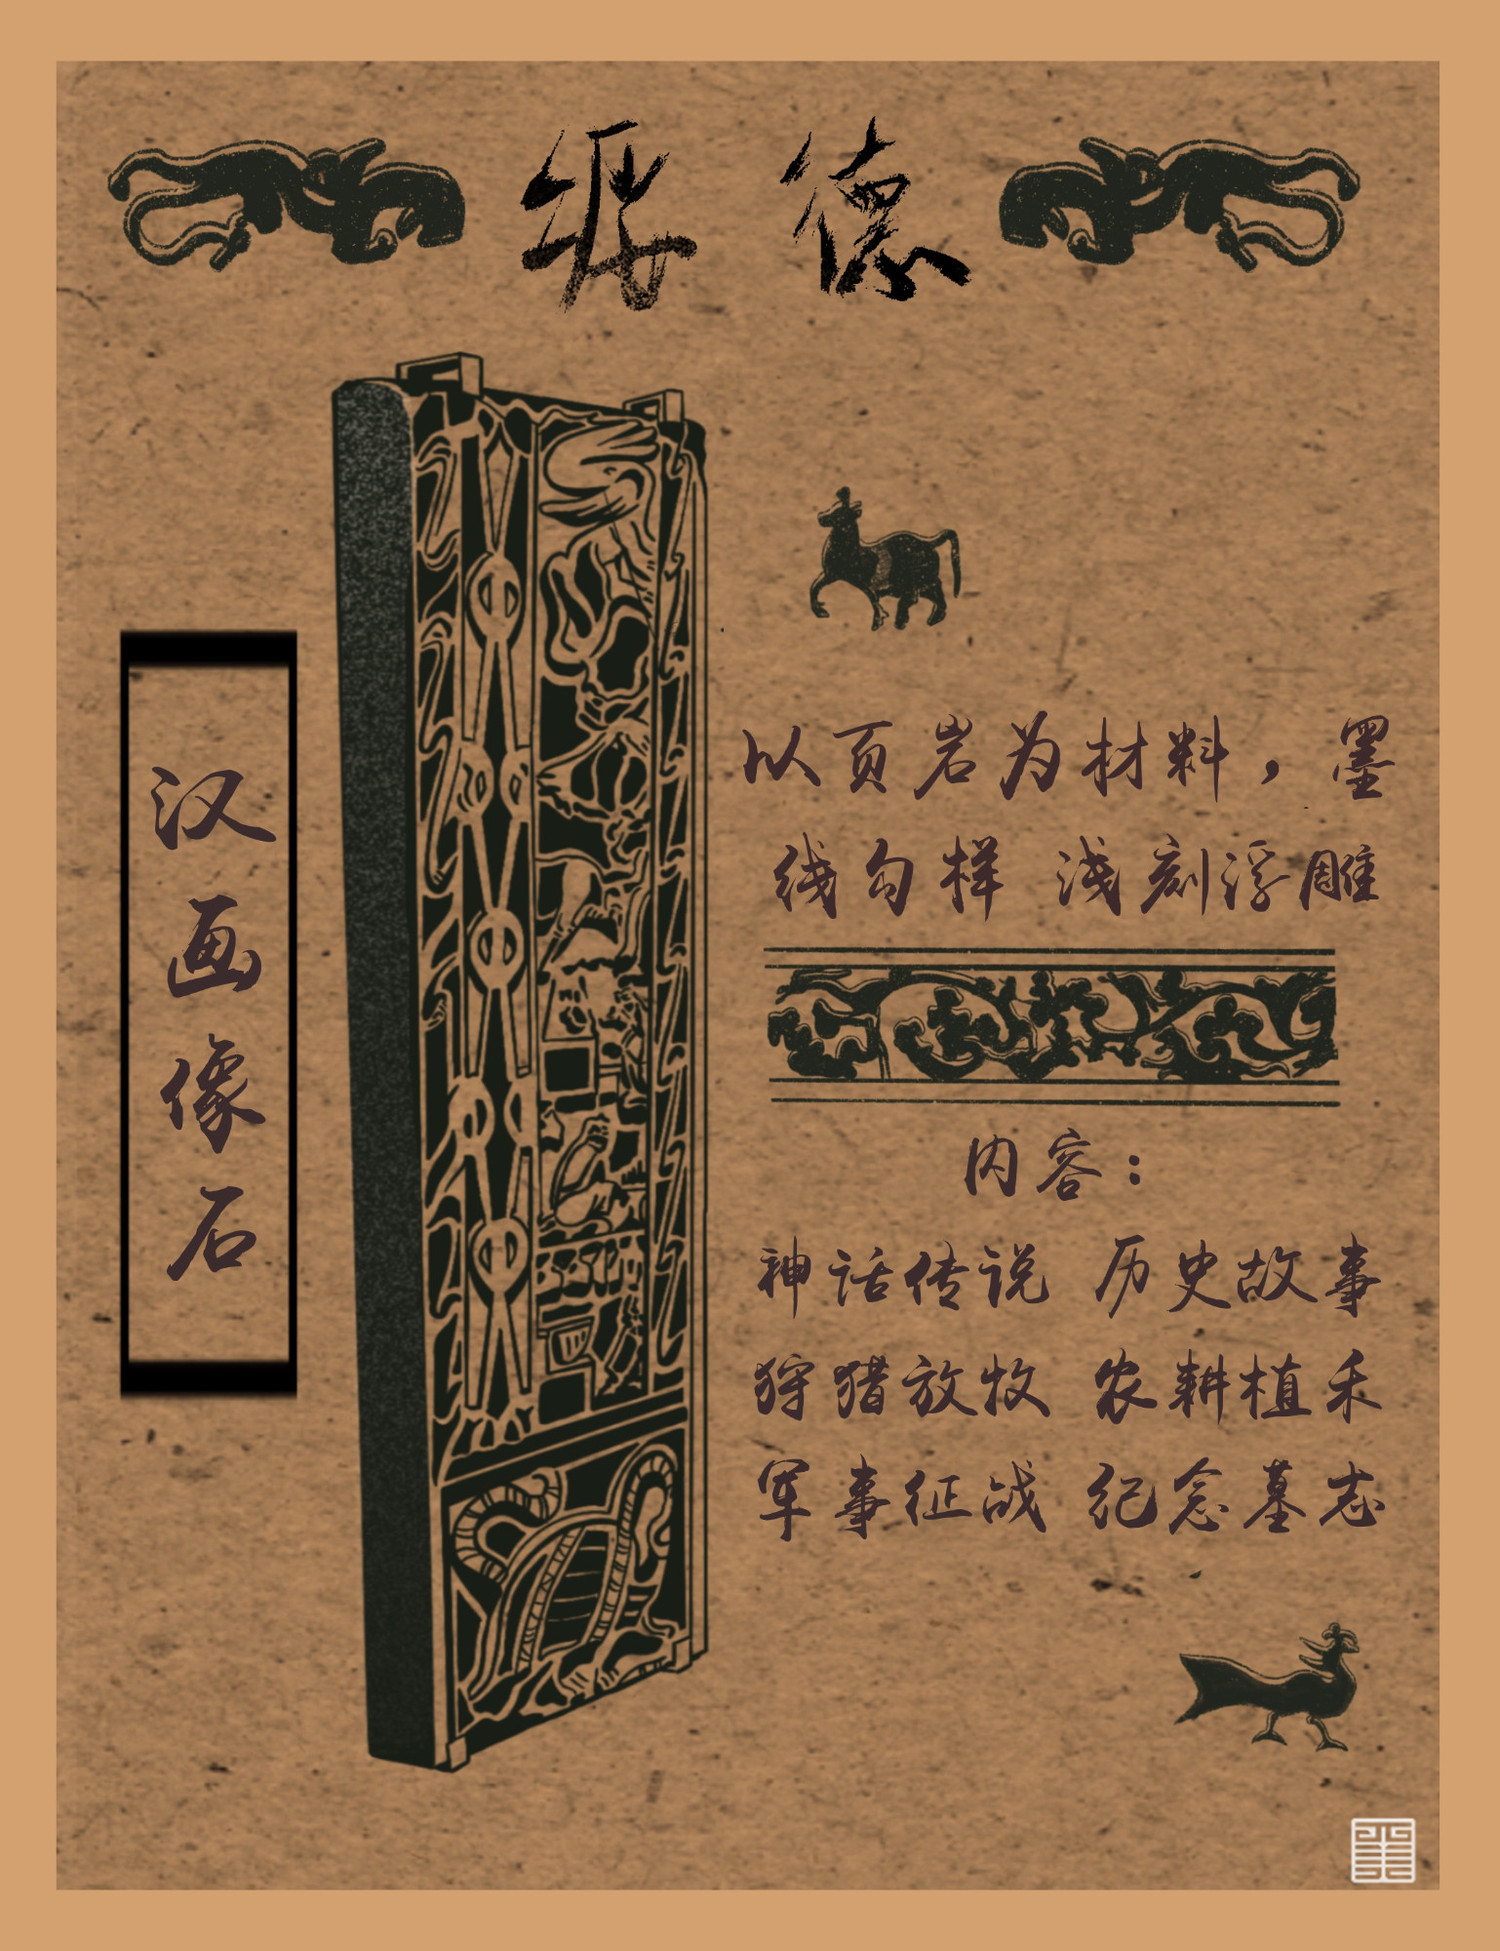 绥 德
汉画像石
以页岩为材料，墨
线勾样 浅刻浮雕
内容：
神话传说 历史故事
狩猎放牧 农耕植禾
军事征战 纪念墓志